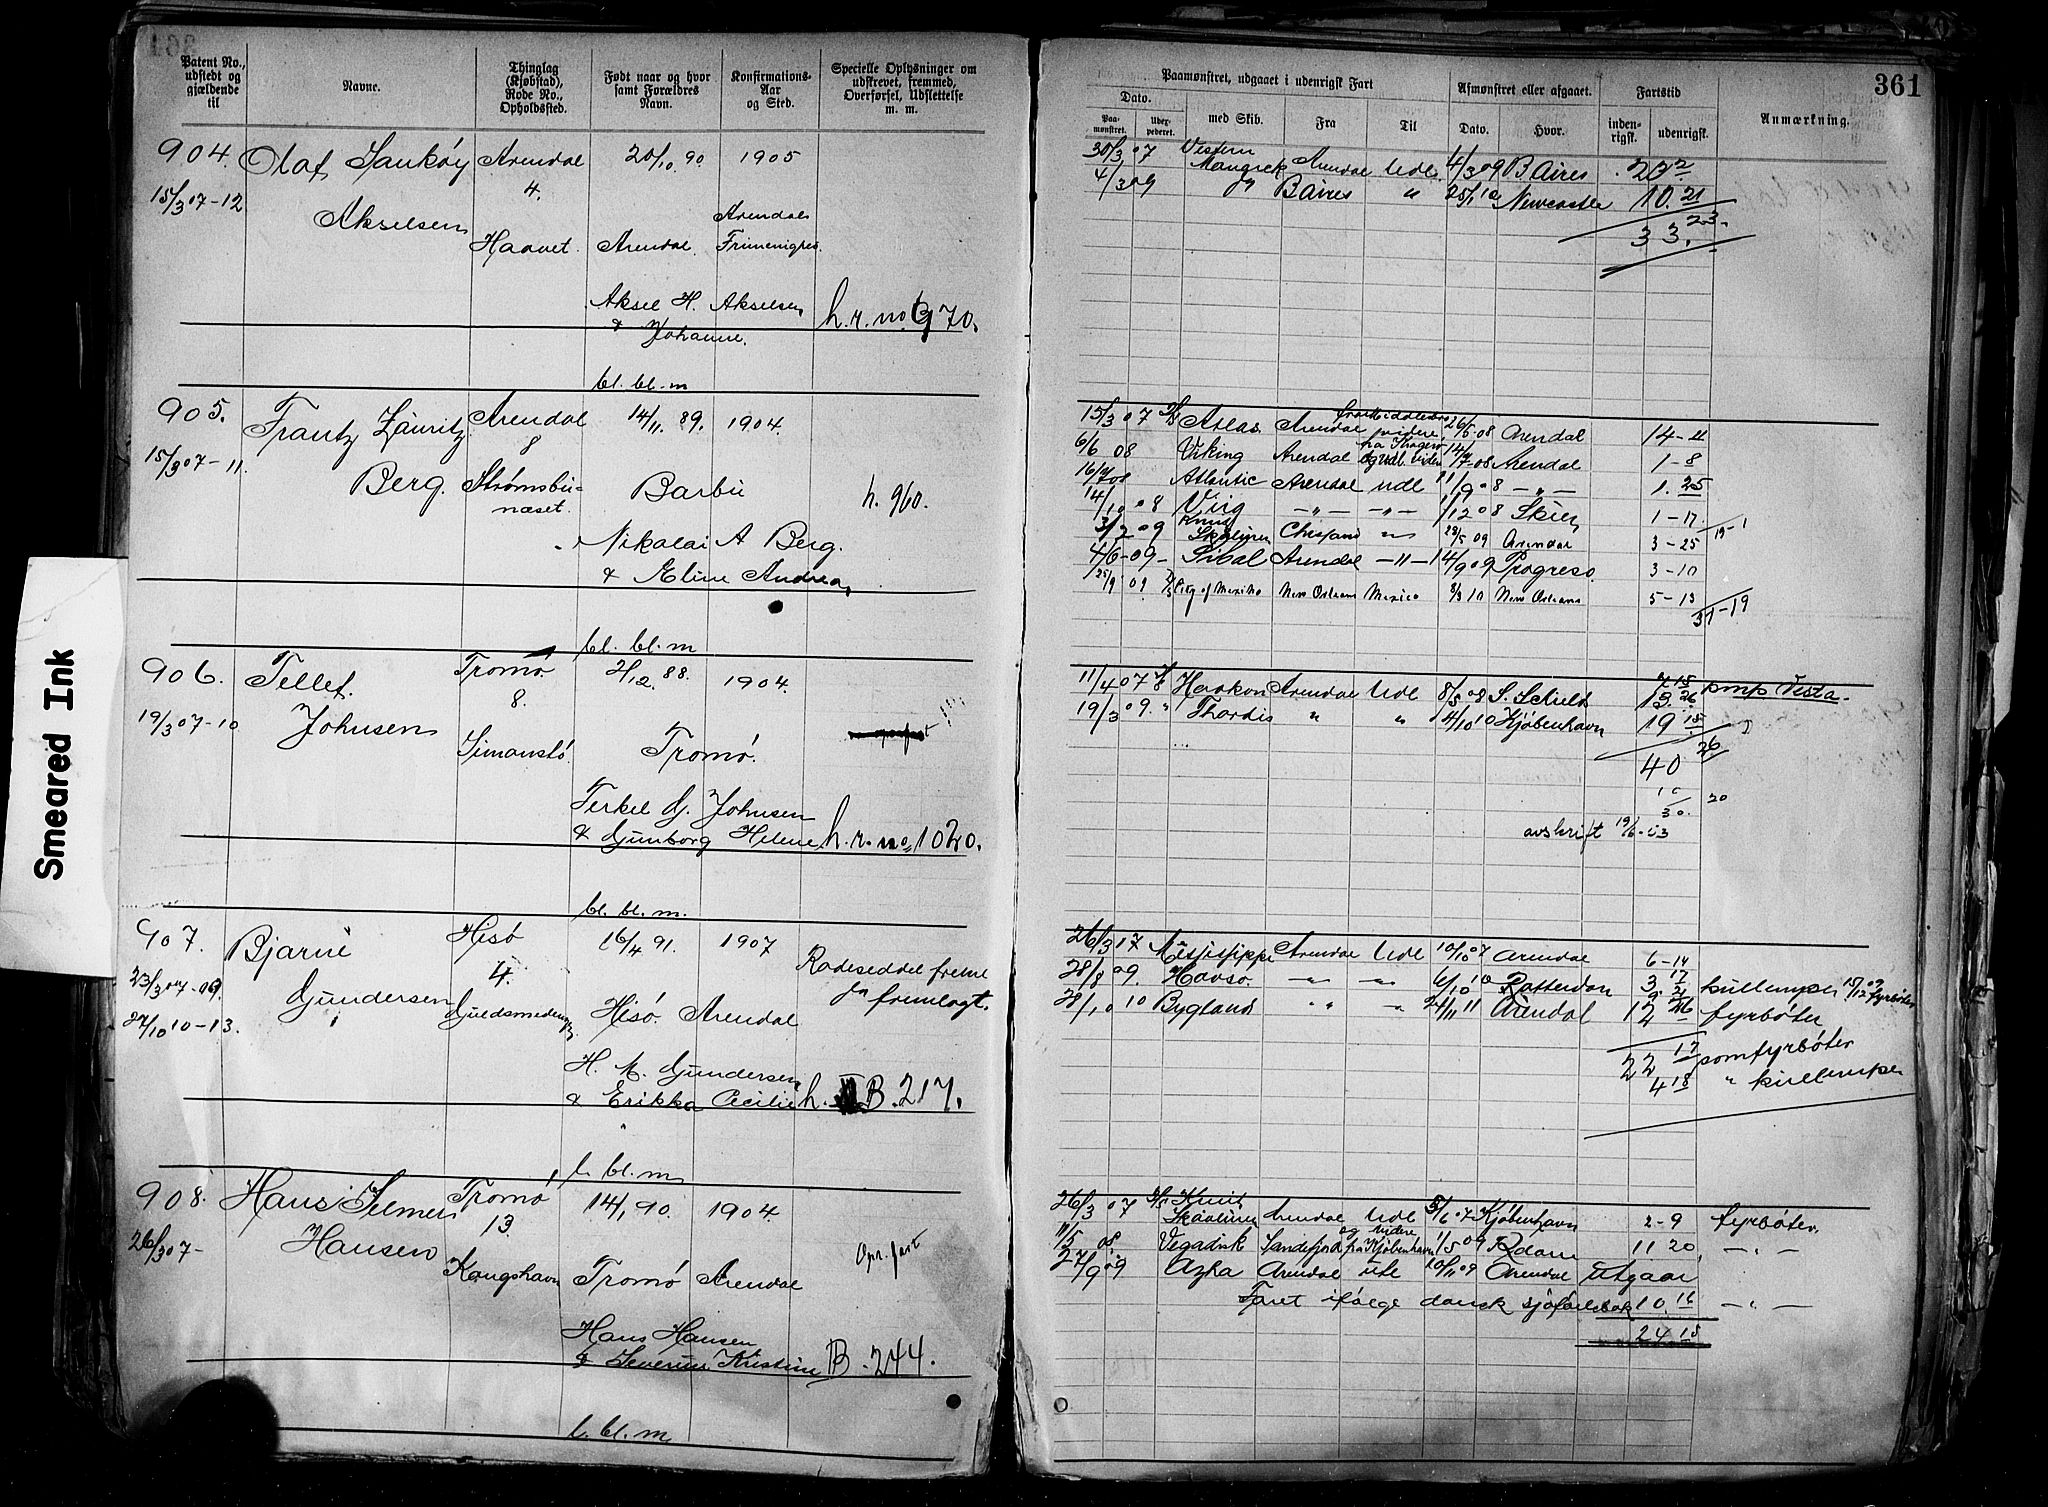 Smeared Ink
361
Patent No., udstedt og gjældende til
Navne.
Thinglag (Kjøbstad), Rode No., Opholdssted.
Født naar og hvor samt Forældres Navn.
Konfirmations-Aar og Sted.
Specielle Oplysninger om udskrevet, fremmed, Overførsel, Udslettelse m. m.
904. Olaf Arendal 20/10 90 1905
15/3 07-12 4.
Akselsen Haavet. Arendal Arendals
Aksel H. Akselsen h.r.no. 970.
& Johanne.
bl. bl. m
905. Frantz Arendal 14/11 89. 1904.
15/3 07-11. 8
Berg. Strømsbu- Barbu h. 960.
næset.
Nikolai A Berg.
& Eline Andrea
bl. bl. m
906. Tellef Tromø 1904.
19/3 07-10 Johnsen 8.
Tromø.
Terkel Gj. Johnsen
& Gunborg Helene h.r.no. 1020.
bl. bl. m.
907. Bjarne Hisø 16/4 91. 1907 Radeseddel
Gundersen 4. fremlagt.
27/10 10-13. Hisø. Arendal
H. M. Gundersen
& Erikka Cecilie h. B. 217.
l. bl. m
908. Hans Selmer Tromø 14/1 90. 1904.
26/3 07- Hansen 13.
Kongshavn Tromø Arendal
Hans Hansen
& Severine Kristine B. 244.
l. bl. m
361
Paamønstret, udgaaet i udenrigsk Fart
Afmønstret eller afgaaet.
Fartstid
Anmærkning.
Dato.
Paa-mønstret.
med Skib.
Fra
Til
Dato.
Hvor.
inden-rigsk.
udenrigsk.
30/3 07 Western Mangrek Arendal Udl. 4/3 09 B Aires
4/3 09 B Aires " 25/1 10 Newcastle 10. 21
33. 23.
15/3 07 Atlas Arendal videre 26/5 08 Arendal 14-11
6/6 08 Viking Arendal Arendal 1-8
Atlantic Arendal udl 11/9 08 -"- 1. 25
14/10 08 Virg -"- -"- 1/12 08 Skien 1-17
3/2 09 Knud Skaaluren Chrsand 28/5 09 Arendal 3-25 19-1
4/6-09- Arendal -"- 14/9 09 Progreso 3-10
25/9 09 City of Mexiko New Orleans Mexico 8/3 10 New Orleans 5-13
31-19
11/4 07 Haakon Arendal Udl 8/5 08 S. Schields
19/3 09. " Thordis " " 14/10 10 Kjøbenhavn 19 15
40 26
30. 20
avskrift 19/6-53
26/3 17 Missisippe Arendal Udl 10/10 07 Arendal 6-14
28/8 09. Havsø. -"- -"- 6/10 10 Rotterdam kullemper
28/10 10 Bygland " " 24/11 11 Arendal fyrbøter
22 17 som fyrbøter
4 18 " kullemper
26/3 07 Knut Skaaluren Arendal Udl 5/6 07 Kjøbenhavn 2-9 fyrbøter.
11/5 08. Vegadisk Sandefjord og videre fra Kjøbenhavn 1/5 09 Rdam 11 20 -"-
27/9 09 Azha Arendal ute 10/11 09 Arendal utgaar
Faret ifølge dansk sjøfartsbok 10. 16 -"-
24 15